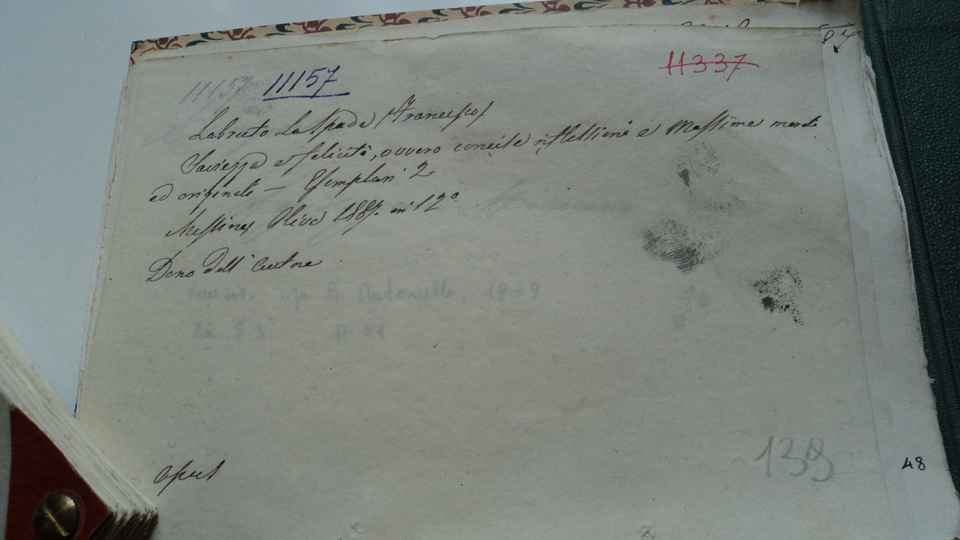 84
11157 11157 11337
Labruto La Spada (Francesco)
Saviezza e felicità, ovvero concise riflessioni e Massime morali
ed originali — Esemplari 2
Messina, Oliva 188 in 12°
Dono dell'Autore
Antonello, 1
138
48
opus